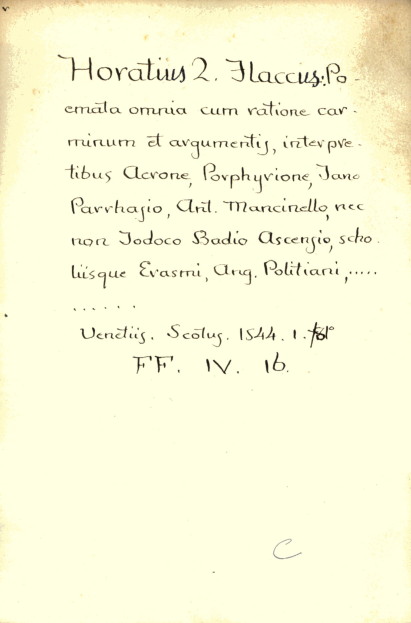 Horatius 2. Flaccus: Po-
emata omnia cum ratione car-
minum et argumentis, interpre-
tibus Acrone, Porphyrione, Jano
Parrhasio, Ant. Mancinello, nec
non Jodoco Badio Ascensio, scho.
liisque Erasmi, Ang. Politiani,.....
......
Venetiis. Scotus. 1544. 1. fol°
FF. IV. 16.
C